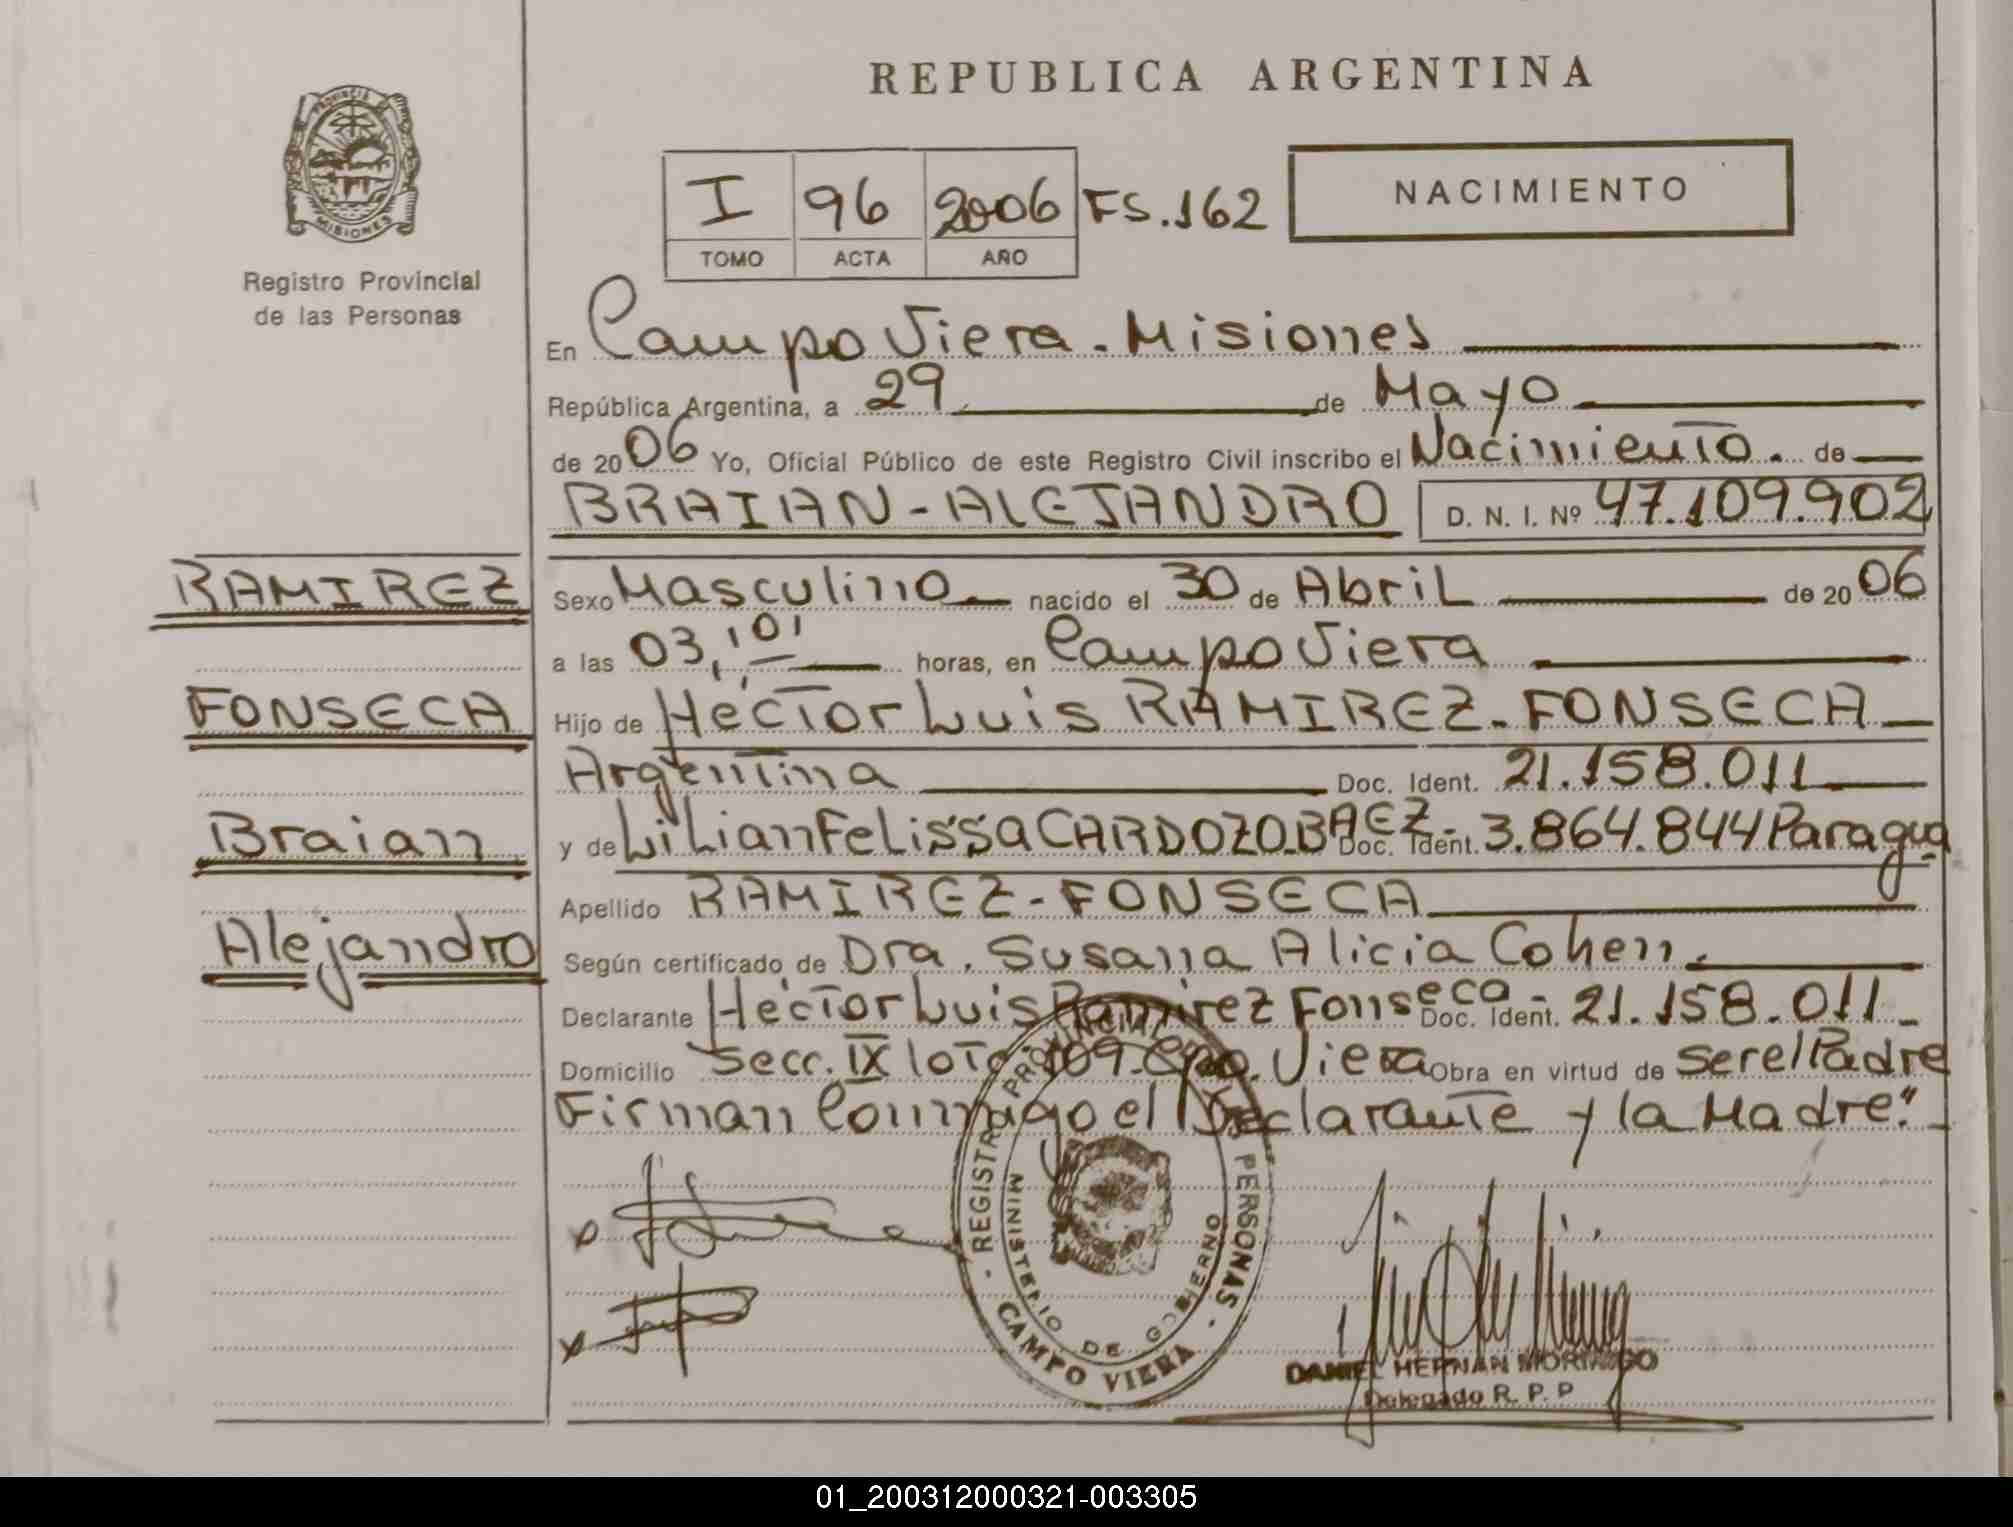 REPUBLICA ARGENTINA
PROVINCIA DE MISIONES
Registro Provincial
de las Personas
I 96 2006 FS.162
TOMO ACTA AÑO
NACIMIENTO
En Campo Viera - Misiones
República Argentina, a 29 de Mayo
de 2006 Yo, Oficial Público de este Registro Civil inscribo el Nacimiento. de
BRAIAN-ALEJANDRO D. N. I. Nº 47.109.902
RAMIREZ
FONSECA
Braian
Alejandro
Sexo Masculino nacido el 30 de Abril de 2006
a las 03,'01' horas, en Campo Viera
Hijo de Héctor Luis RAMIREZ-FONSECA
Argentina Doc. Ident. 21.158.011
y de Lilian Felissa CARDOZO.BAEZ- Doc. Ident. 3.864.844 Paragua
Apellido RAMIREZ-FONSECA
Según certificado de Dra. Susana Alicia Cohen.
Declarante Héctor Luis Ramirez Fonseca - Doc. Ident. 21.158.011
Domicilio Secc. IX lote 109-Cpo. Viera Obra en virtud de ser el Padre
Firman Conmigo el Declarante y la Madre."
REGISTRO PROVINCIAL PERSONAS
MINISTERIO DE GOBIERNO
CAMPO VIERA
DANIEL HERNAN MORINIGO
Delegado R. P. P
01_200312000321-003305